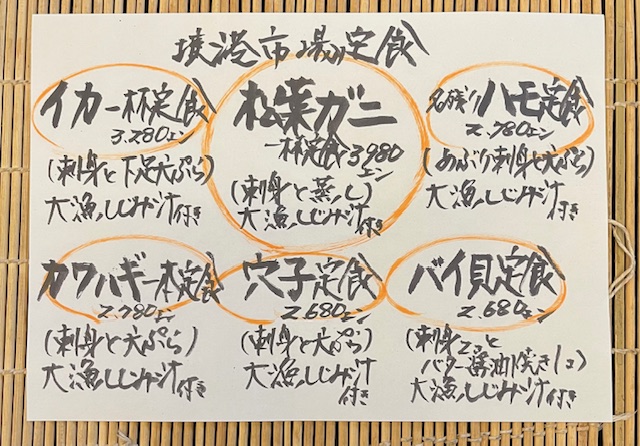 境港市場定食
イカ一杯定食
3.280エン
(刺身と下足天ぷら)
大漁しじみ汁付き
松葉ガニ
一杯定食3980
エン
(刺身と蒸し)
大漁しじみ汁付き
名残りハモ定食
2.780エン
(あぶり刺身と天ぷら)
大漁しじみ汁付き
カワハギ一本定食
2.780エン
(刺身と天ぷら)
大漁しじみ汁付き
穴子定食
2.680エン
(刺身と天ぷら)
大漁しじみ汁
付き
バイ貝定食
2.680エン
(刺身2コと
バター醤油焼き1コ)
大漁しじみ汁付き